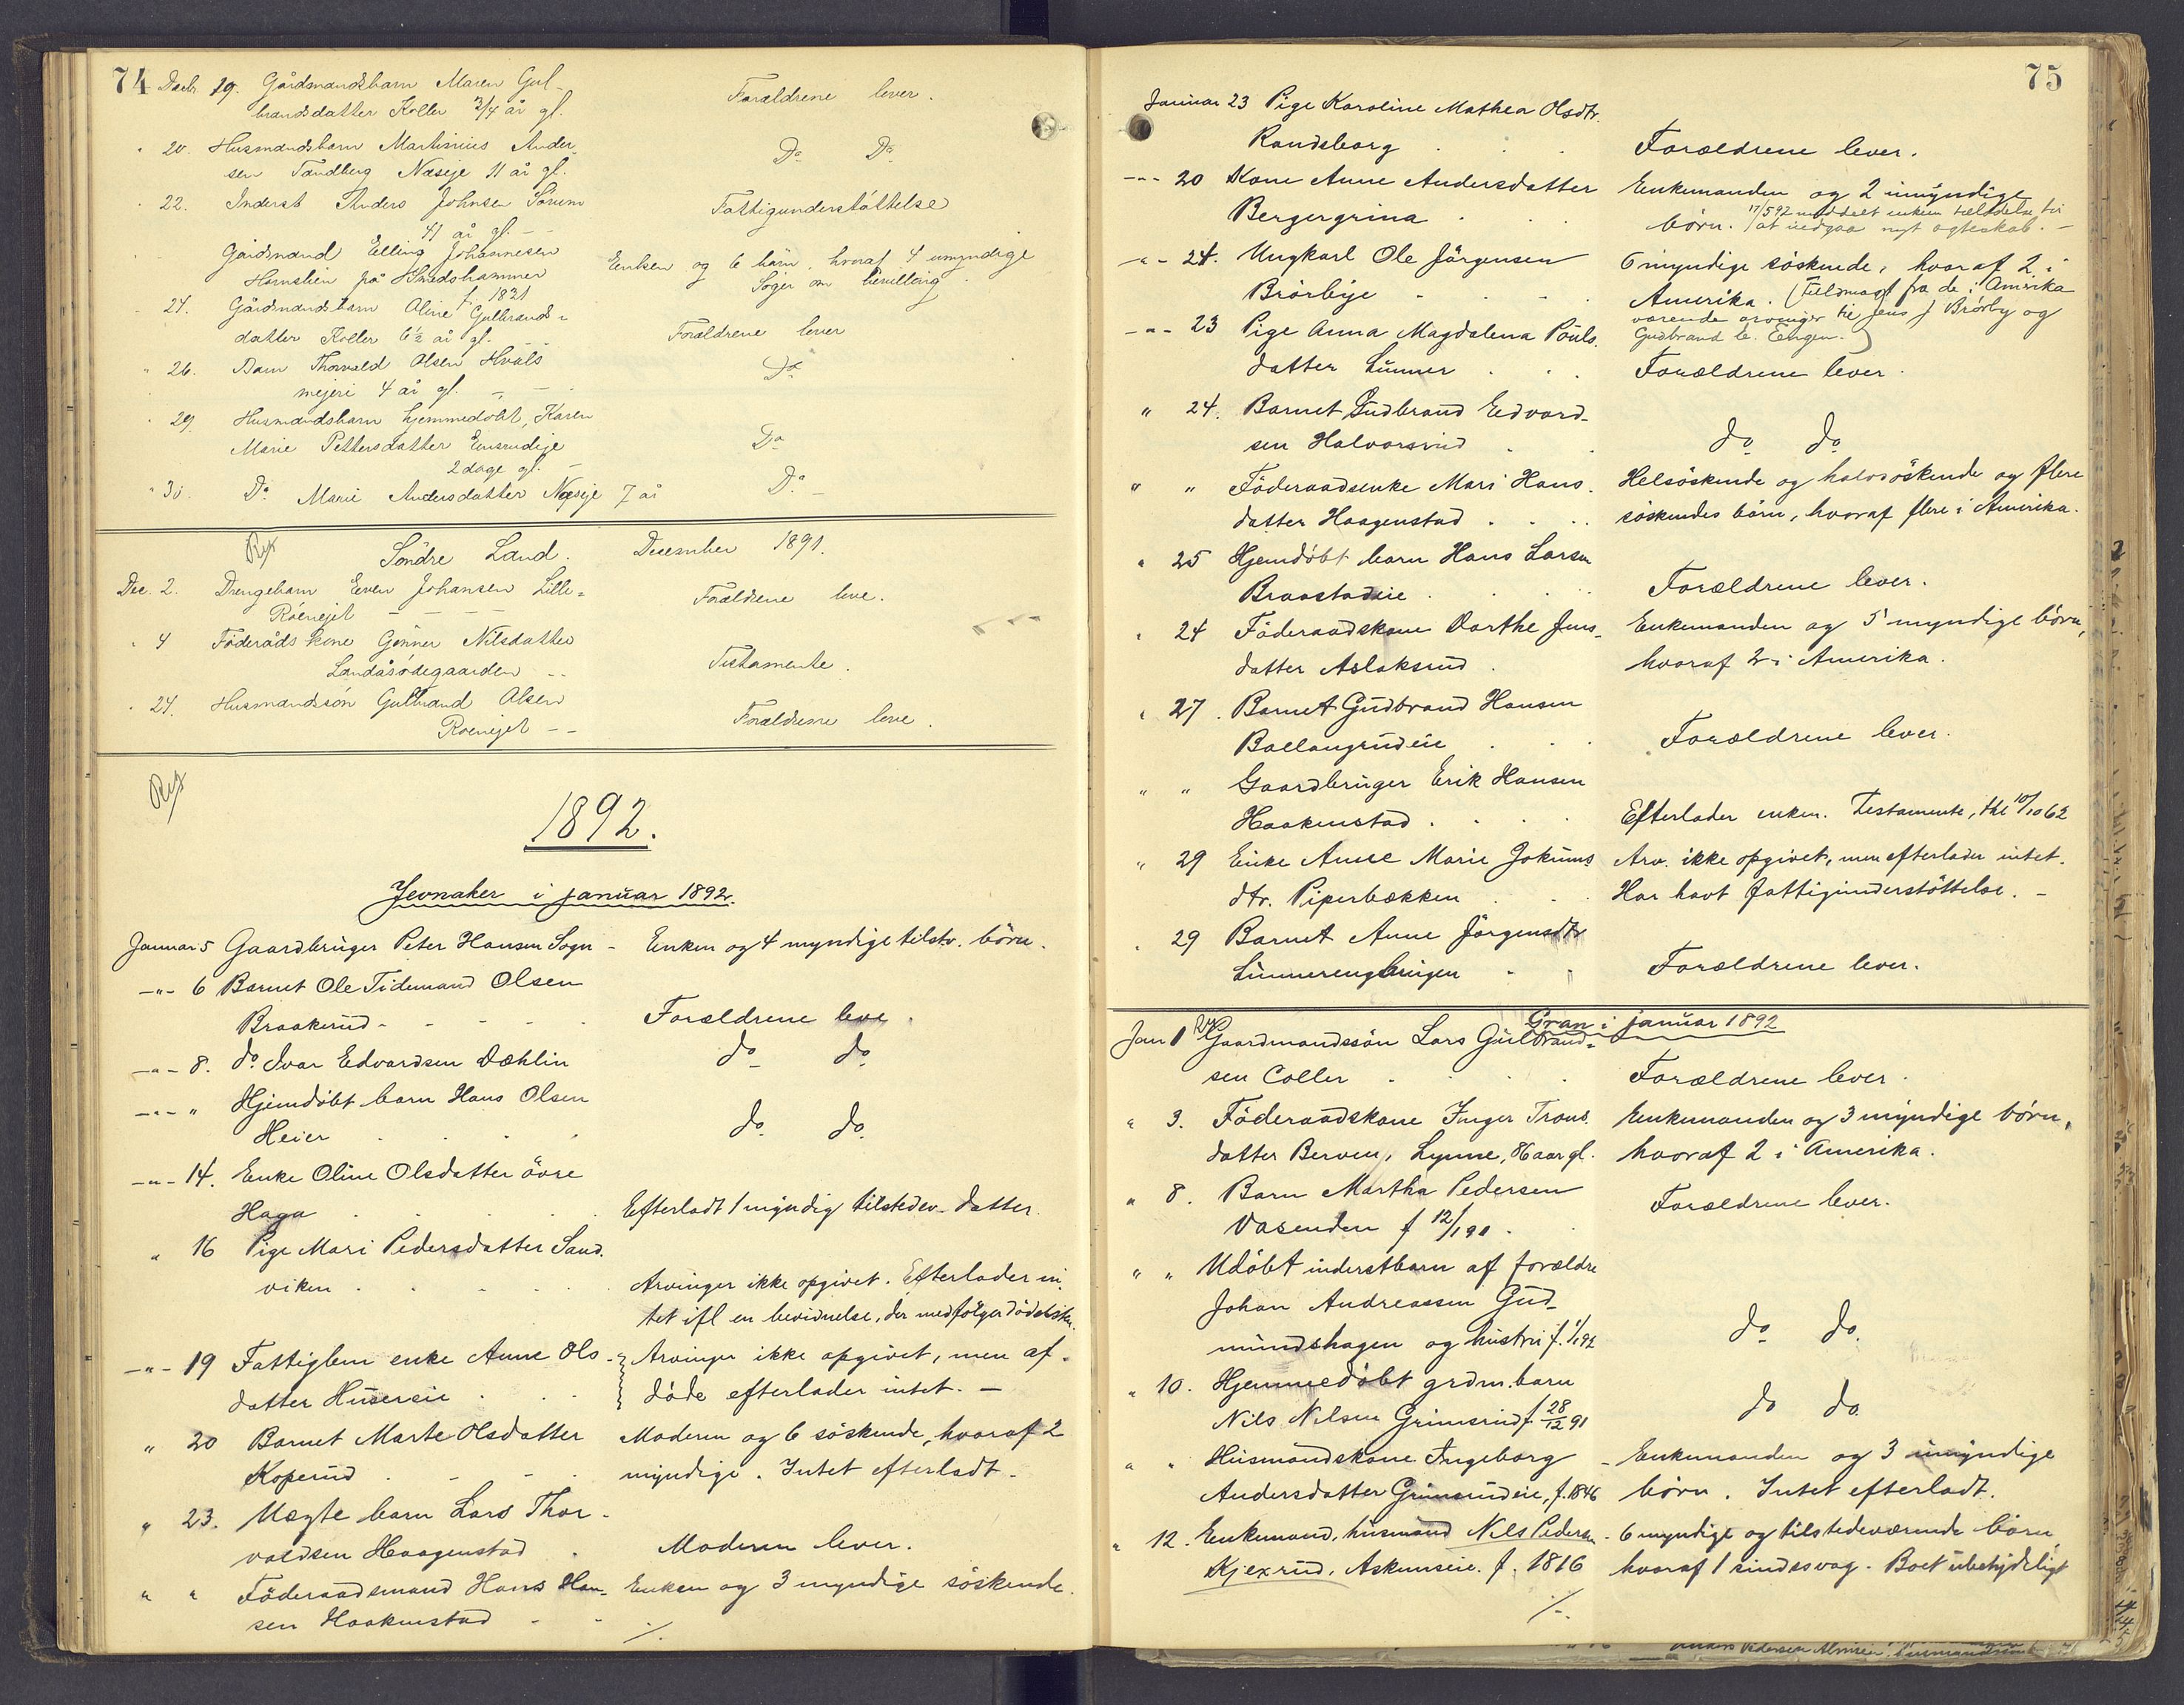 74 Decb. 19. Gårdmandsbarn Maren Gul-
brandsdatter Koller 3/4 år gl. Forældrene lever.
" 20. Husmandsbarn Martinius Ander-
sen Tandberg Næseje 11 år gl. Do Do
" 22. Inderst Anders Johnsen Sörum
41 år gl. - - Fattigunderstöttelse
Gårdmand Elling Johannesen
Hornslien på Smedshammer Enken og 6 börn, hvoraf 4 umyndige
f. 1821 Söger om bevilling.
" 24. Gårdmandsbarn Oline Gulbrands-
datter Koller 6½ år gl. - - Forældrene lever
" 26. Barn Thorvald Olsen Hvals
mejeri 4 år gl. - - Do
" 29. Husmandsbarn hjemmedöbt, Karen
Marie Pettersdatter Ensrudije
2 dage gl. - Do
" 30. Do Marie Andersdatter Næseje 7 år Do -
Söndre Land. December 1891.
Dec. 2. Drengebarn Even Johansen Lille-
Röenejet - - - - Forældrene leve.
" 4 Föderåds kone Gönner Nilsdatter
Landåsödegaarden - - Testamente.
" 24. Husmandssön Gulbrand Olsen
Roenejet - - Forældrene leve.
1892.
Jevnaker i januar 1892.
Januar 5 Gaardbruger Peter Hansen Sogn - Enken og 4 myndige tilstv. börn.
-"- 6 Barnet Ole Tidemand Olsen
Braakerud - - - - - Forældrene leve.
-"- 8. do. Ivar Edvardsen Dæhlin do do
-"- " Hjemdöbt barn Hans Olsen
Heier . . . . do do
-"- 14. Enke Oline Olsdatter övre
Haga . . . . Efterladt 1 myndig tilstedev. datter.
" 16 Pige Mari Pedersdatter Sand.
viken . . . . Arvinger ikke opgivet. Efterlader in
tet ifl en bevidnelse, der medfölger
-"- 19 Fattiglem enke Anne Ols- Arvinger ikke opgivet, men af-
datter Husereie . . . döde efterlader intet. -
" 20 Barnet Marte Olsdatter Moderen og 6 söskende, hvoraf 2
Koperud . - - . myndige. Intet efterladt.
" 23. Uægte barn Lars Thor-
valdsen Haagenstad . Moderen lever.
" " Föderaadsmand Hans Han- Enken og 3 myndige söskende.
sen Haakenstad - - ./.
75
Januar 23 Pige Karoline Mathea Olsdtr.
Randsborg . . . Forældrene lever.
-"- 20 Kone Anne Andersdatter Enkemanden og 2 umyndige
Bergergrina . . . börn. 17/5 92 meddelt enkem tilladelse til
at indgaa nyt ægteskab. -
-"- 24. Ungkarl Ole Jörgensen 6 myndige söskende, hvoraf 2 i
Brörbye - . . . Amerika. (Fuldmagt fra de i Amerika
værende arvinger til Jens J Brörby og
Gudbrand L. Engen.)
-"- 23 Pige Anna Magdalena Pouls.
datter Lunner . . . Forældrene lever.
" 24. Barnet Gudbrand Edvard-
sen Halvorsrud . . do do
" " Föderaadsenke Mari Hans. Helsöskende og halvsöskende og flere
datter Haagenstad . . . söskendes börn, hvoraf flere i Amerika.
" 25 Hjemdöbt barn Hans Larsen
Braastadeie . . . Forældrene lever.
" 24 Föderaadskone Dorthe Jens- Enkemanden og 5 myndige börn,
datter Aslaksrud . hvoraf 2 i Amerika.
" 27. Barnet Gudbrand Hansen
Ballangrudeie . . . Forældrene lever.
" " Gaardbruger Erik Hansen
Haakenstad . . . . Efterlader enken. Testamente, thl 10/10 62
" 29 Enke Anne Marie Jokums Arv. ikke opgivet, men efterlader intet.
dtr. Piperbækken . . . Har havt fattigunderstöttelse. -
" 29 Barnet Anne Jörgensdtr
Lunnerengbrugen - " Forældrene lever.
Gran i januar 1892
Jan 1 Gaardmandssön Lars Gulbrand-
sen Coller . . . . Forældrene lever.
" 3. Föderaadskone Inger Trons. Enkemanden og 3 myndige börn,
datter Berven, Lynne, 86 aar gl. hvoraf 2 i Amerika.
" 8. Barn Martha Pedersen
Vasenden f 12/1 91. . Forældrene lever.
" " Udöbt inderstbarn af forældre
Johan Andreassen Gud-
mundshagen og hustru f. 1/1 92 do do.
" 10. Hjemmedöbt grdm.barn
Nils Nilsen Grimsrud f 28/12 91 do do.
" " Husmandskone Ingeborg - Enkemanden og 3 umyndige
Andersdatter Grimsrudeie, f. 1846 börn. Intet efterladt.
" 12. Enkemand, husmand Nils Pedersen - 6 myndige og tilstedeværende börn,
Kjexrud, Askimseie. f. 1816 hvoraf 1 sindssvag. Boet ubetydeligt
./.